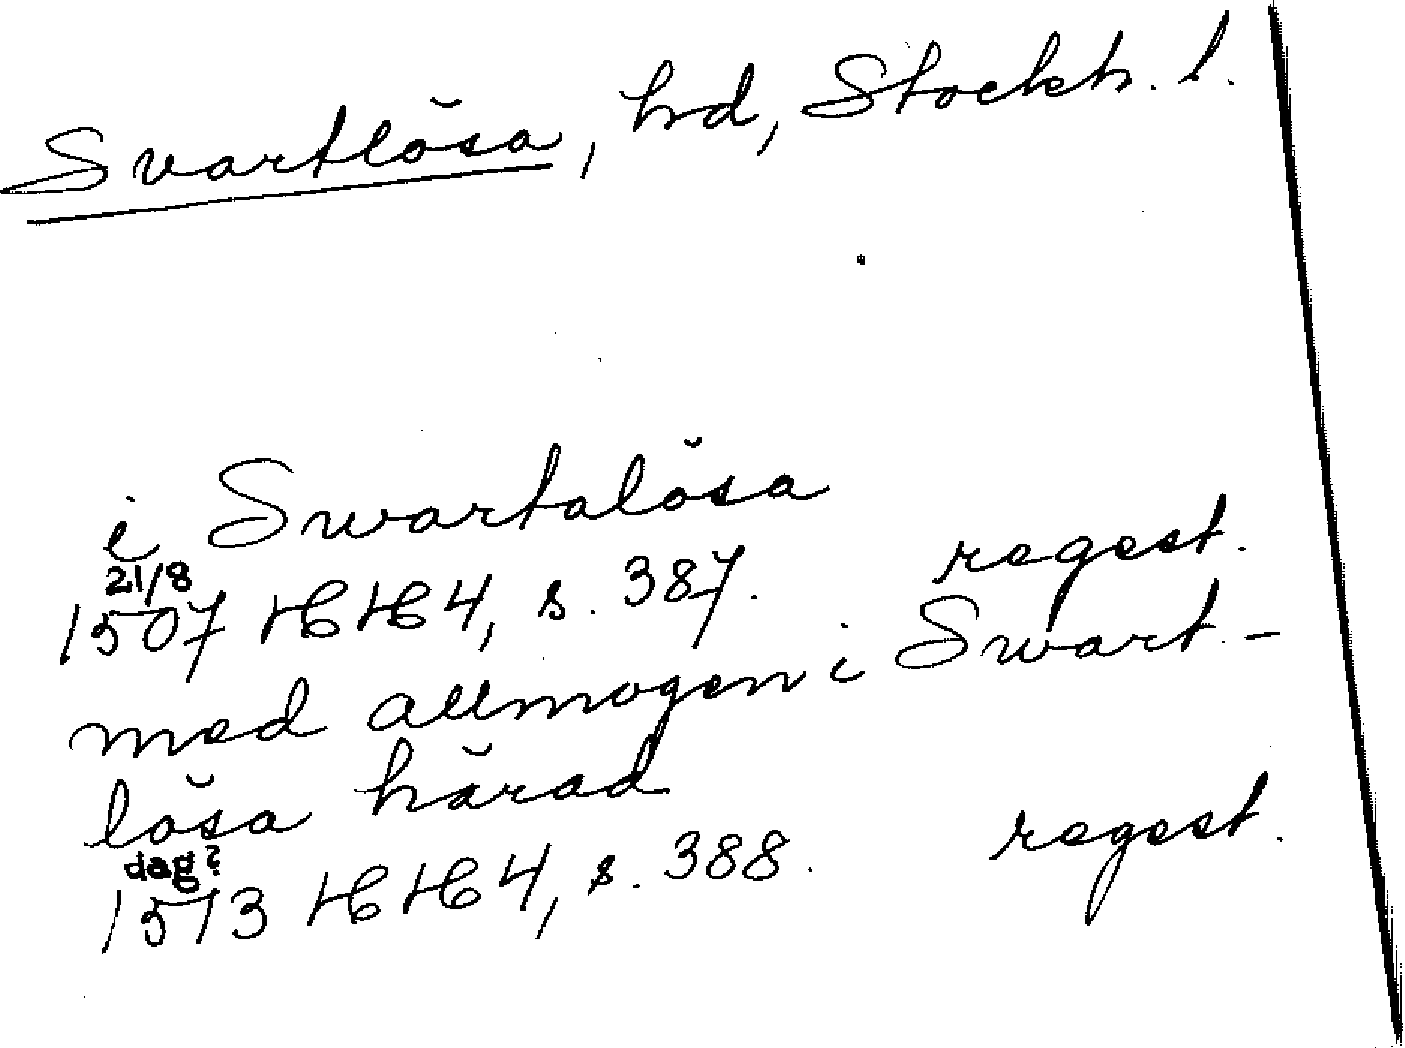 Svartlösa, hd, Stockh. l.
i Swartalösa
21/8
1507 HH 4, s. 387. regest.
med allmogen i Swart-
lösa härad
dag?
1513 HH 4, s. 388. regest.